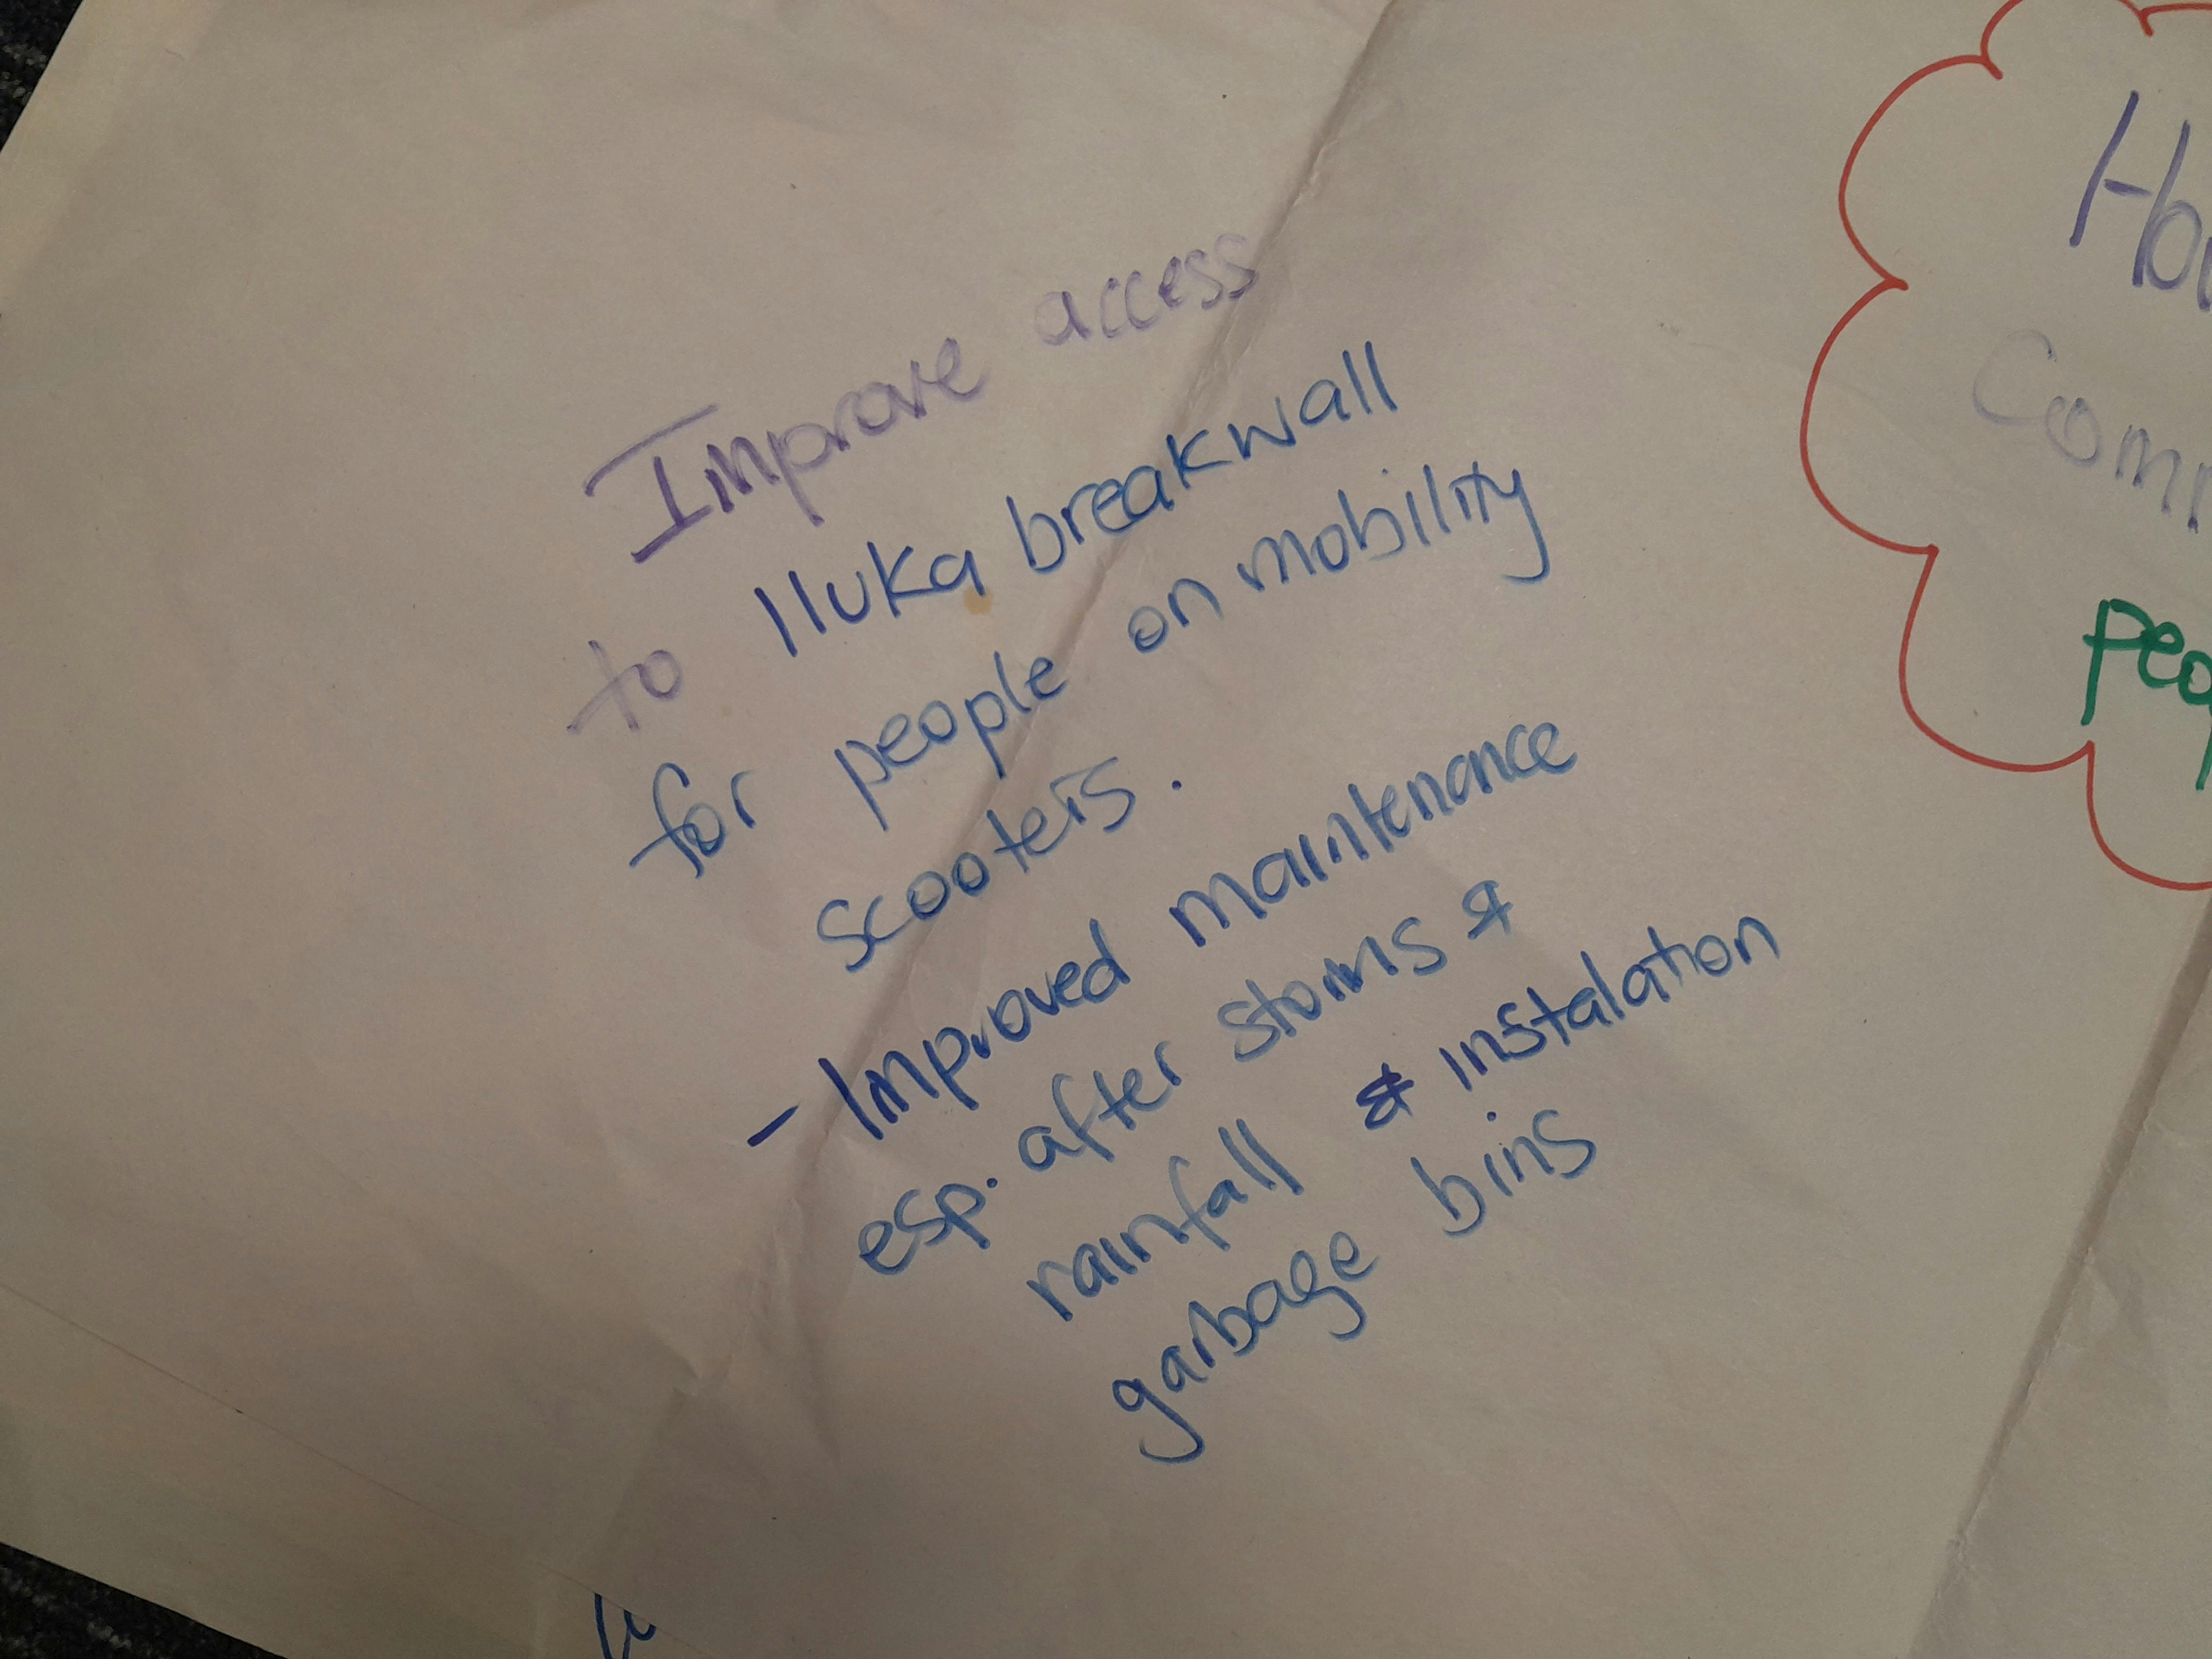 Improve access
to Iluka breakwall
for people on mobility
scooters.
- Improved maintenance
esp. after storms &
rainfall & instalation
garbage bins